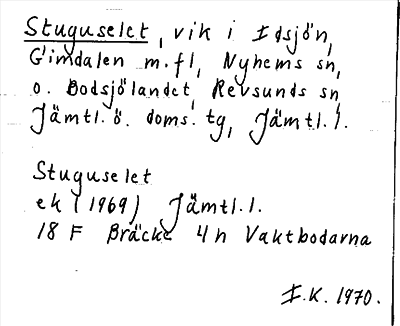 Stuguselet, vik i Idsjön,
Gimdalen m.fl, Nyhems sn,
o. Bodsjölandet, Revsunds sn,
Jämtl.ö. doms. tg, Jämtl.l.
Stuguselet
ek (1969) Jämtl.l.
18 F Bräcke 4h Vaktbodarna
I.K. 1970.